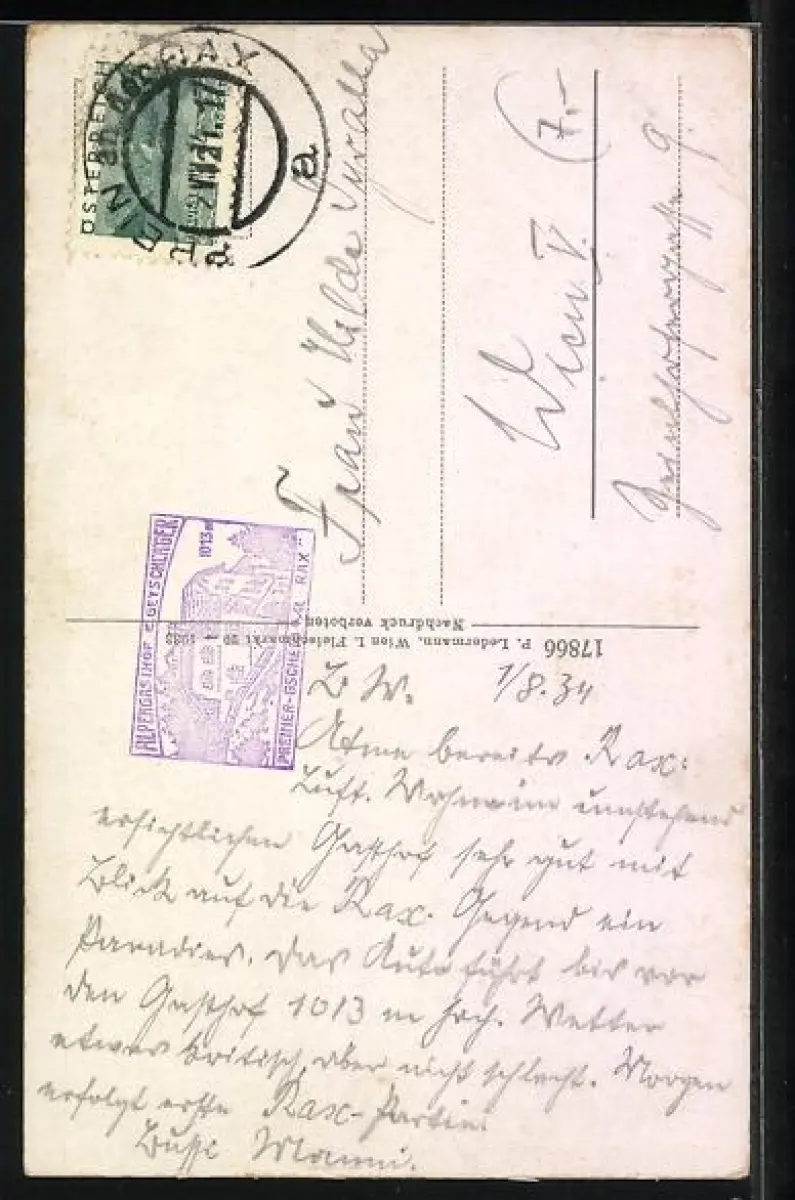 ÖSTERREICH
an der RAX
a
Frau Hilde
Wien V. (7.-
9.
ALPENGASTHOF
1013 m
PREINER-GSCHEID
RAX
17866 P. Ledermann, Wien I. Fleischmarkt 20 1933
Nachdruck verboten
1/8.34
Atme bereits Rax-
Luft. Wohne im umstehend
ersichtlichen Gasthof sehr gut mit
Blick auf die Rax. Gegend ein
Paradies. Das Auto führt bis vor
den Gasthof 1013 m hoch. Wetter
etwas kritisch, aber nicht schlecht. Morgen
erfolgt erste Rax-Partie.
Manni.